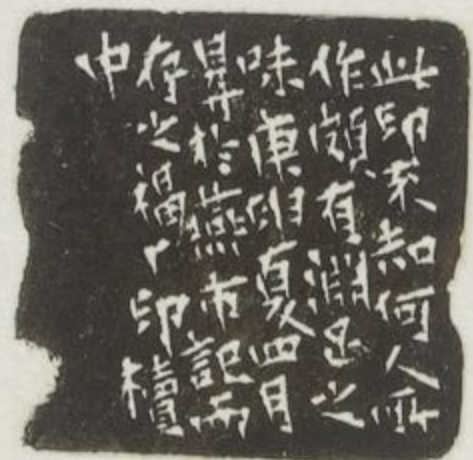 此印未知何人所
作頗有淵之
味庚夏四月
於燕市記而
存之福厂印櫝
中